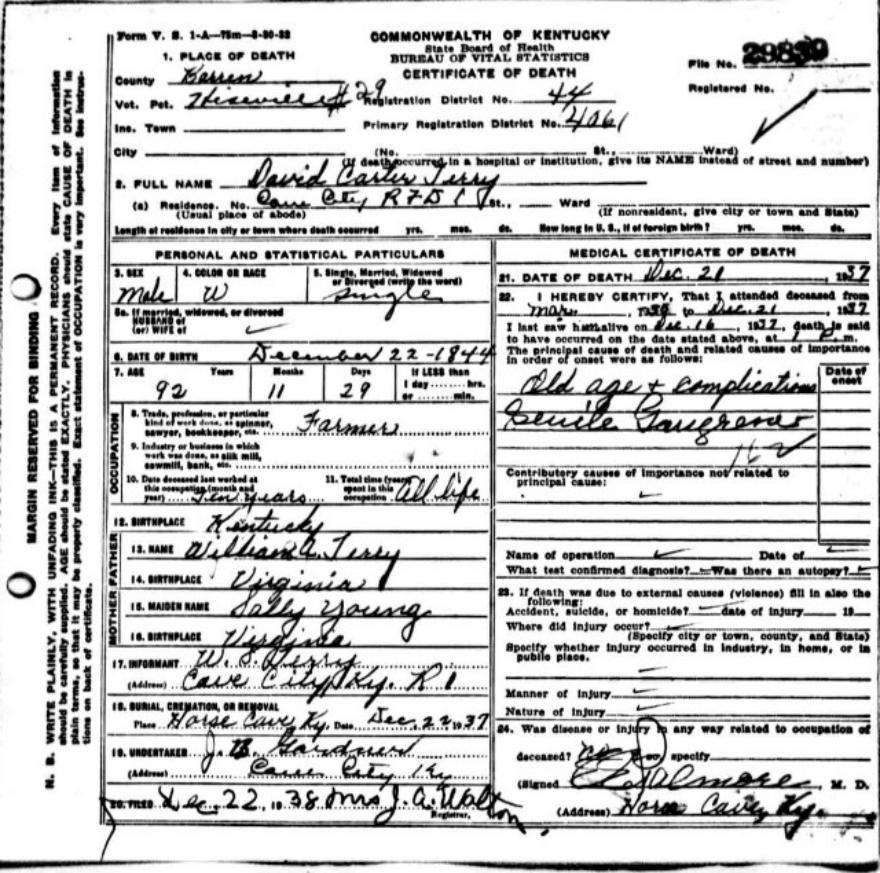 Form V. S. 1-A—75m—3-30-32
COMMONWEALTH OF KENTUCKY
State Board of Health
BUREAU OF VITAL STATISTICS
CERTIFICATE OF DEATH
File No. 29839
Registered No.
1. PLACE OF DEATH
County Barren
Vot. Pct. Hiseville # 29 Registration District No. 44
Inc. Town Primary Registration District No. 4061
City (No. St., Ward)
(If death occurred in a hospital or institution, give its NAME instead of street and number)
2. FULL NAME David Carter Terry
(a) Residence. No. Cave City R F D 1 St., Ward
(Usual place of abode) (If nonresident, give city or town and State)
Length of residence in city or town where death occurred yrs. mos. ds. How long in U. S., if of foreign birth? yrs. mos. ds.
PERSONAL AND STATISTICAL PARTICULARS
3. SEX 4. COLOR OR RACE 5. Single, Married, Widowed
or Divorced (write the word)
Male W Single
5a. If married, widowed, or divorced
HUSBAND of
(or) WIFE of
6. DATE OF BIRTH December 22-1844
7. AGE Years Months Days If LESS than
1 day hrs.
or min.
92 11 29
OCCUPATION
8. Trade, profession, or particular
kind of work done, as spinner,
sawyer, bookkeeper, etc. Farmer
9. Industry or business in which
work was done, as silk mill,
sawmill, bank, etc.
10. Date deceased last worked at
this occupation (month and
year) Ten years
11. Total time (years)
spent in this
occupation All life
12. BIRTHPLACE Kentucky
FATHER
13. NAME William A. Terry
14. BIRTHPLACE Virginia
MOTHER
15. MAIDEN NAME Sally Young
16. BIRTHPLACE Virginia
17. INFORMANT W. S. Terry
(Address) Cave City, Ky. R 1
18. BURIAL, CREMATION, OR REMOVAL
Place Horse Cave Ky, Date Dec, 22 1937
19. UNDERTAKER J. B. Gardner
(Address) Cave City Ky
20. FILED Dec 22, 1938 Mrs J. A. Walton
Registrar.
MEDICAL CERTIFICATE OF DEATH
21. DATE OF DEATH Dec. 21, 1937
22. I HEREBY CERTIFY, That I attended deceased from
Mar, to Dec. 21, 1937
I last saw him alive on Dec. 16, 1937, death is said
to have occurred on the date stated above, at 1 P. m.
The principal cause of death and related causes of importance
in order of onset were as follows:
Date of
onset
Old age + complications
Senile Gangrene
162
Contributory causes of importance not related to
principal cause:
Name of operation Date of
What test confirmed diagnosis? Was there an autopsy?
23. If death was due to external causes (violence) fill in also the
following:
Accident, suicide, or homicide? date of injury 19
Where did injury occur?
(Specify city or town, county, and State)
Specify whether injury occurred in industry, in home, or in
public place.
Manner of injury
Nature of injury
24. Was disease or injury in any way related to occupation of
deceased? no If so, specify
(Signed) M. D.
(Address) Horse Cave, Ky.
MARGIN RESERVED FOR BINDING
N. B. WRITE PLAINLY, WITH UNFADING INK—THIS IS A PERMANENT RECORD. Every item of information
should be carefully supplied. AGE should be stated EXACTLY. PHYSICIANS should state CAUSE OF DEATH in
plain terms, so that it may be properly classified. Exact statement of OCCUPATION is very important. See instruc-
tions on back of certificate.